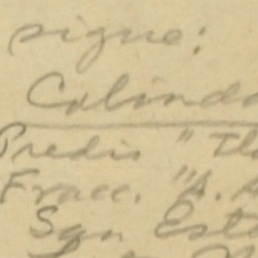 sigue:
Colindo
Predio "Tl
Fracc. "A. A
San Est